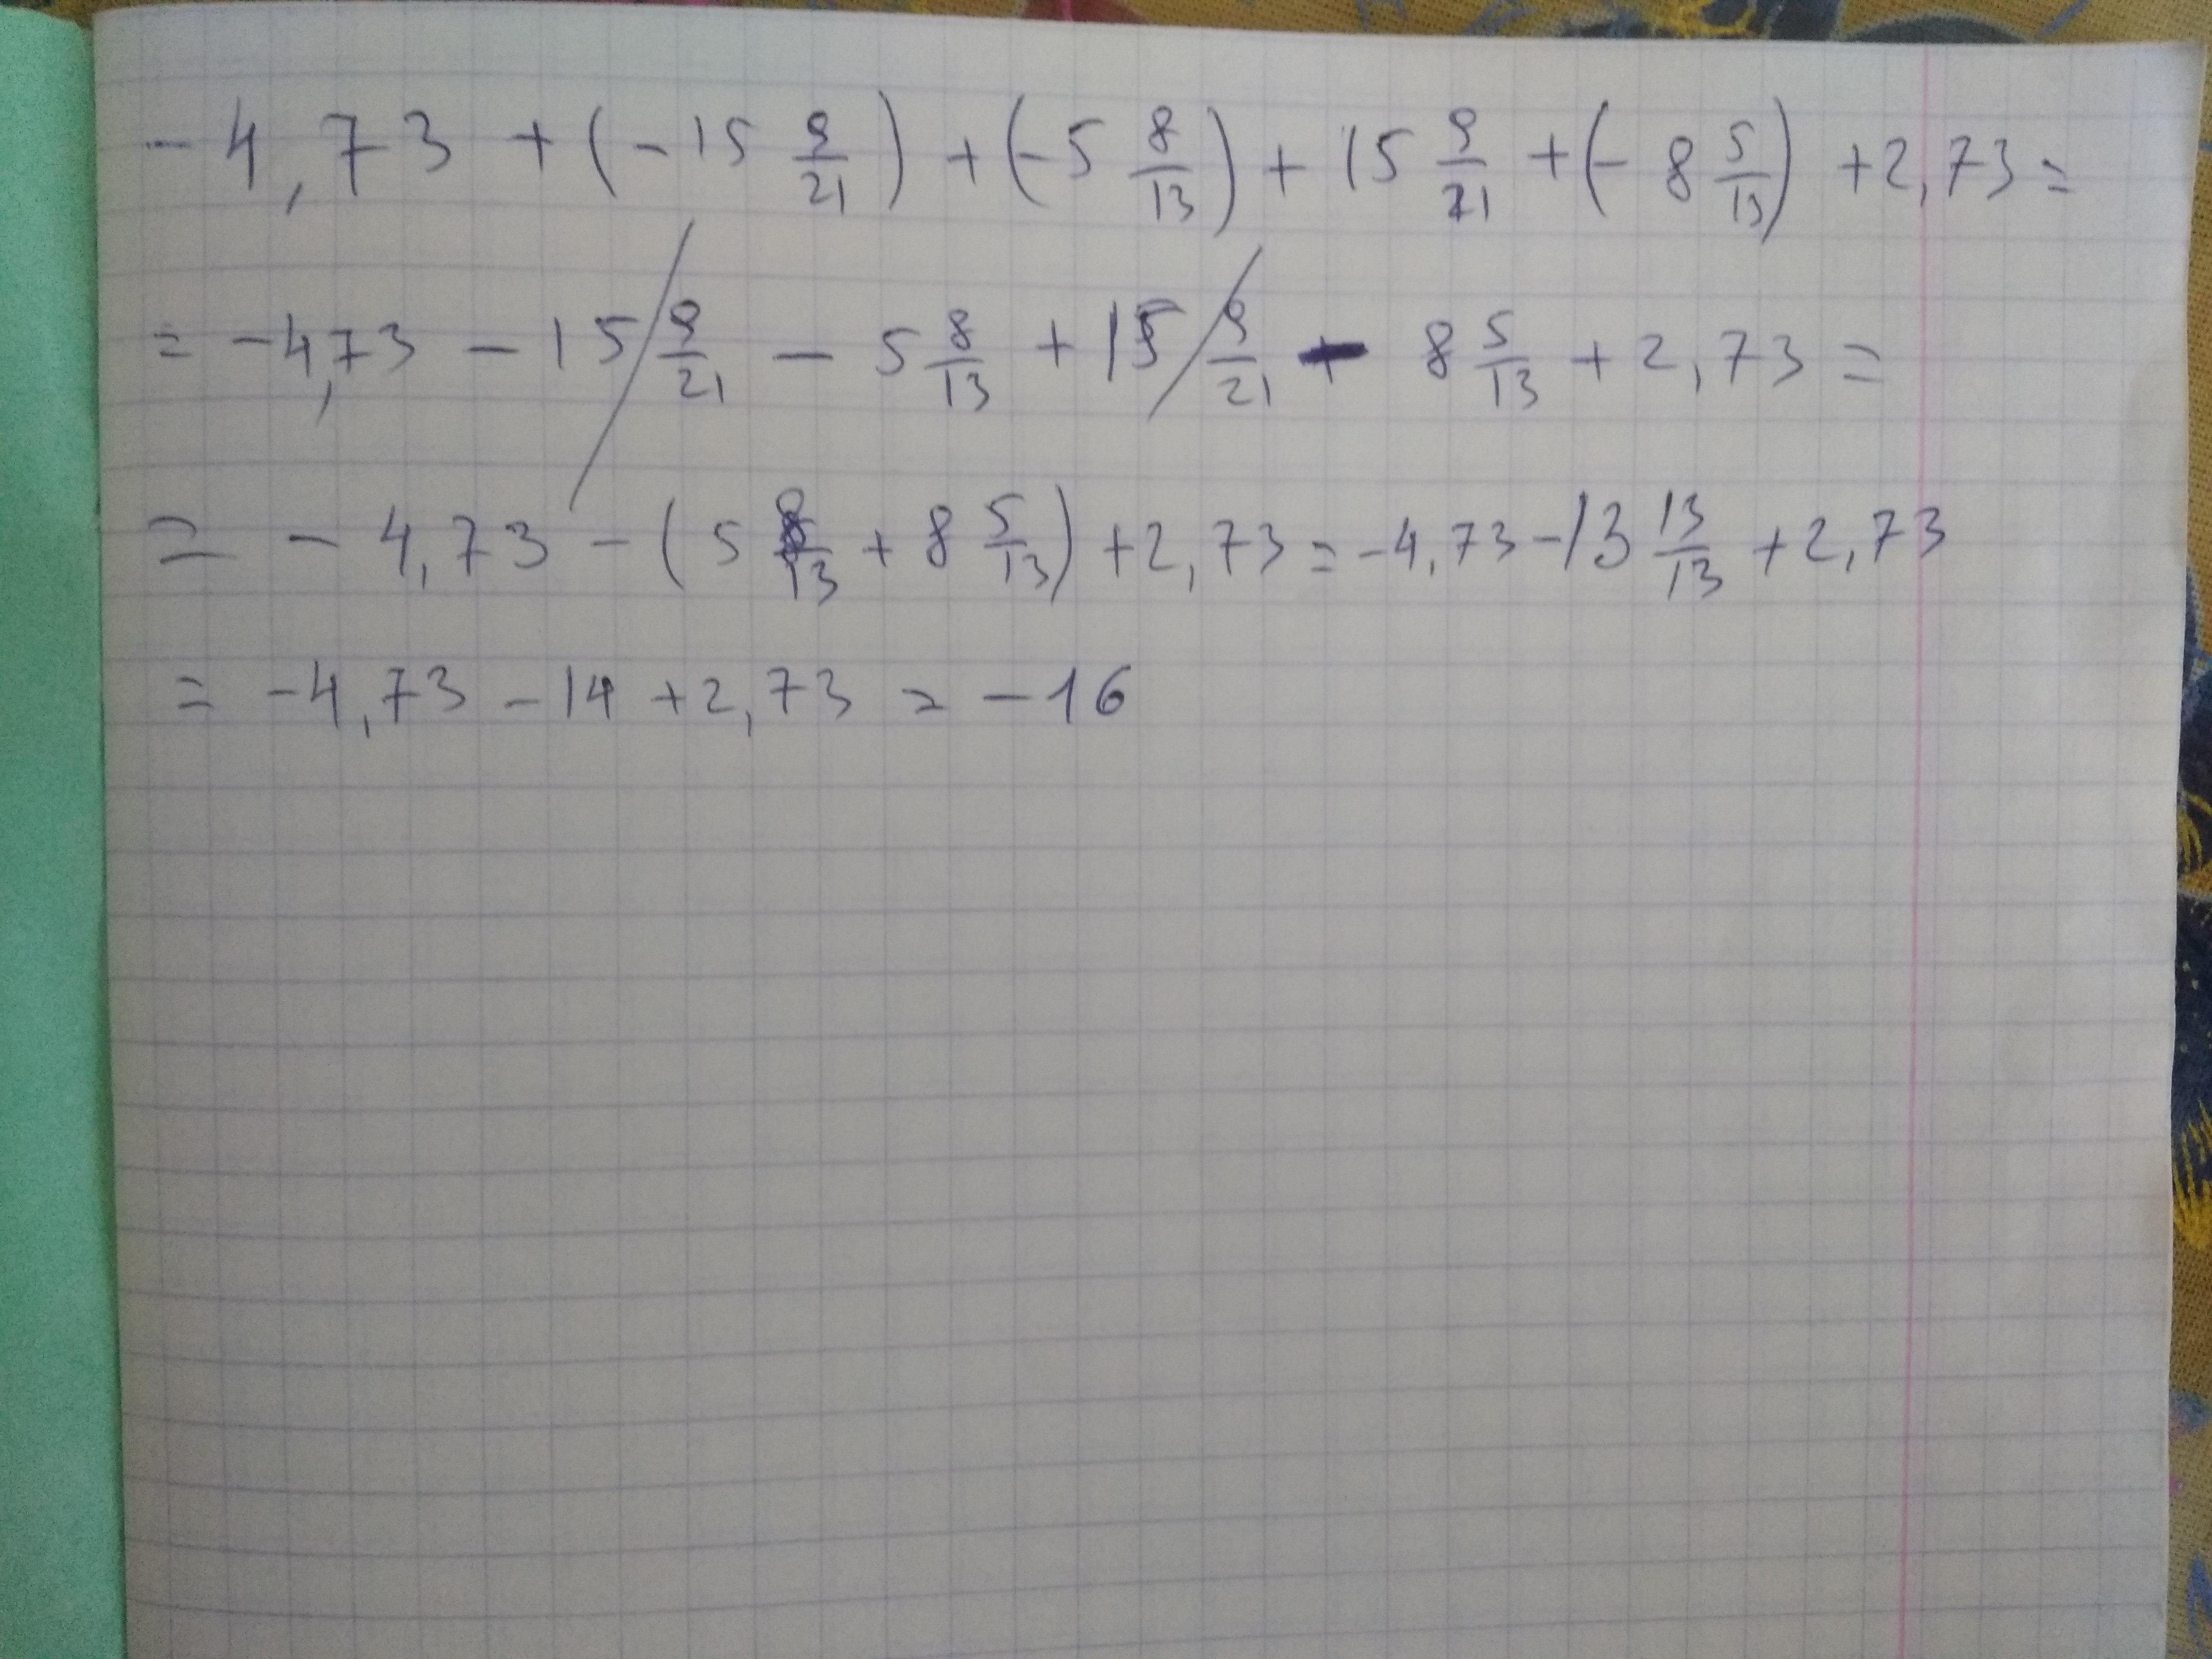 - 4,73 + (- 15 9/21) + (- 5 8/13) + 15 9/21 + (- 8 5/13) + 2,73 =
= - 4,73 - 15 9/21 - 5 8/13 + 15 9/21 - 8 5/13 + 2,73 =
= - 4,73 - (5 8/13 + 8 5/13) + 2,73 = - 4,73 - 13 13/13 + 2,73
= - 4,73 - 14 + 2,73 = - 16